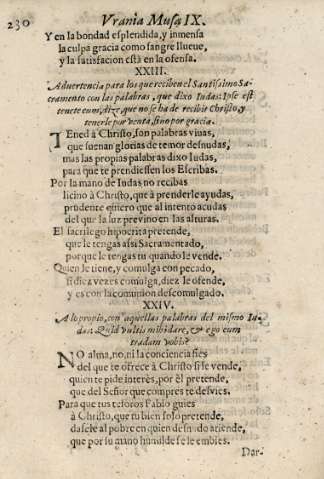 230 Vrania Musa IX.
Y en la bondad esplendida, y inmensa
la culpa gracia como sangre llueue,
y la satisfacion està en la ofensa.
XXIII.
Aduertencia para los que reciben el Santissimo Sa-
cramento con las palabras, que dixo Iudas: Ipse est
tenete eum, dize, que no se ha de recibir Christo, y
tenerle por venta, sino por gracia.
TEned à Christo, son palabras viuas,
que suenan glorias de temor desnudas,
mas las propias palabras dixo Iudas,
para que te prendiessen los Escribas.
Por la mano de Iudas no recibas
à Christo, que à prenderle ayudas,
prudente quiero que al intento acudas
del que la luz preuino en las alturas.
El sacrilego hipocrita pretende,
que le tengas assi Sacramentado,
porque le tengas tu quando le vende.
Quien le tiene, y comulga con pecado,
si diez vezes comulga, diez le ofende,
y es con la comunion descomulgado.
XXIV.
A lo propio, con aquellas palabras del mismo Iu-
das: Quid vultis mihi dare, & ego eum
tradam vobis?
NO alma, no, ni la conciencia fies
del que te ofrece à Christo si le vende,
quien te pide interès, por èl pretende,
que del Señor que compres te desvies.
Para que tus tesoros Pablo guies
à Christo, que tu bien solo pretende,
dasele al pobre en quien desnudo atiende,
que por su mano humilde se le embies.
Dar-